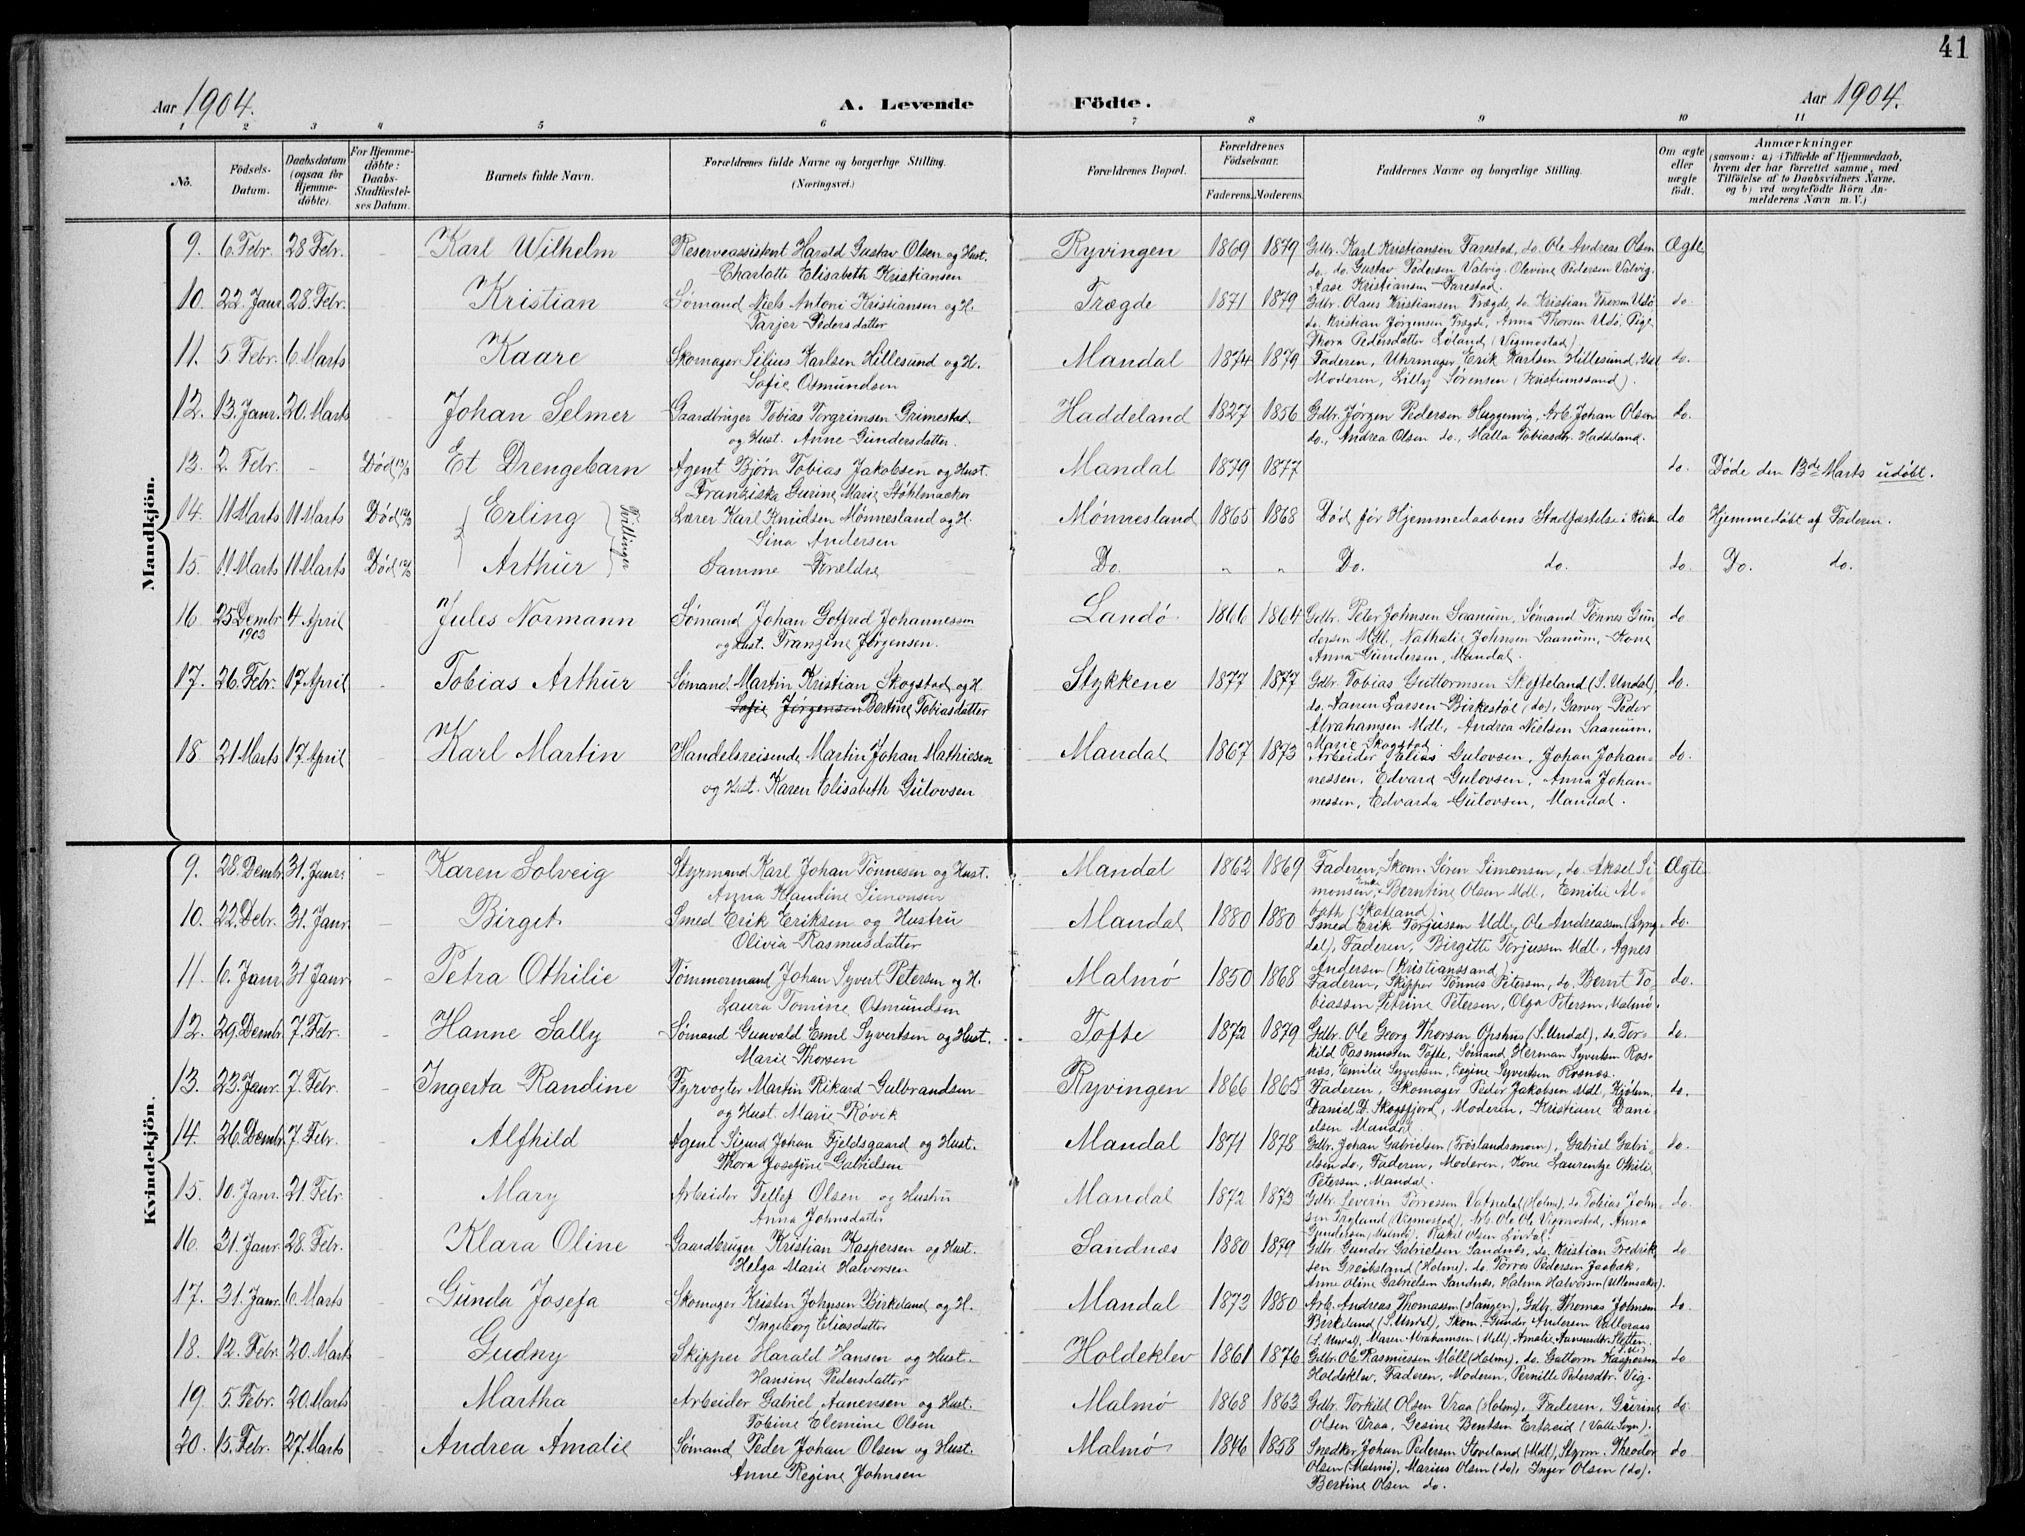 41
Aar 1904. A. Levende
Födte. Aar 1904.
1 2 3 4 5 6 7 8 9 10 11
No. Födsels-Datum. Daabsdatum (ogsaa for Hjemme-döbte). For Hjemme-döbte: Daabs-Stadfæstel-ses Datum. Barnets fulde Navn. Forældrenes fulde Navne og borgerlige Stilling. (Næringsvei.) Forældrenes Bopæl. Forældrenes Födselsaar. Faderens. Moderens. Faddernes Navne og borgerlige Stilling. Om ægte eller uægte født. Anmærkninger (saasom: a) i Tilfælde af Hjemmedaab, hvem der har forrettet samme, med Tilföielse af to Daabsvidners Navne, og b) ved uægtefödte Börn An-melderens Navn m. V.)
Mandkjön.
9. 6. Febr. 28 Febr. - Karl Wilhelm Reserveassistent Harald Gustav Olsen og Hust. Ryvingen 1869 1879 Gdbr. Karl Kristiansen Farestad, do. Ole Andreas Olsen Ægte
Charlotte Elisabeth Kristiansen do. do. Gustav Pedersen Valvig. Olevine Pedersen Valvig.
Aase Kristiansen Farestad.
10. 22. Janr. 28. Febr. - Kristian Sømand Niels Antoni Kristiansen og H. Trægde 1871 1879 Gdbr. Olaus Kristiansen Trægde, do. Kristian Thorsen Udö, do.
Tarjer Pedersdatter do. Kristian Jørgensen Trægde, Anna Thorsen Udö, Pige
Thora Pedersdatter Løland (Vigmostad)
11. 5. Febr. 6. Marts - Kaare Skomager Silius Karlsen Hillesund og H. Mandal 1874 1879 Faderen, Uhrmager Erik Karlsen Hillesund, Mdl do.
Sofie Osmundsen Moderen, Lilly Sørensen (Kristianssand).
12. 13. Janr. 20. Marts - Johan Selmer Gaardbruger Tobias Torgrimsen Grimestad Haddeland 1827 1856 Gdbr. Jørgen Pedersen Huggenvig, Arb. Johan Olsen do.
og Hust. Anne Gundersdatter. do., Andrea Olsen do., Malla Tobiasdtr. Haddeland.
13. 2. Febr. - Död 13/3 Et Drengebarn Agent Bjørn Tobias Jakobsen og Hust. Mandal 1879 1877 do. Døde den 13de Marts udöbt.
Franziska Gurine Marie Støhlmacker
14. 11 Marts 11 Marts Död 12/3 Erling Tvillinger Lærer Karl Knudsen Mønnesland og H. Mønnesland 1865 1868 Död før Hjemmedaabens Stadfæstelse i Kirken do Hjemmedöbt af Faderen.
Sina Andersen
15. 11 Marts 11 Marts Död 12/3 Arthur Samme Forældre Do. " " Do. do. do. Do. do.
16 25 Dembr. 1903 4 April Jules Normann Sømand Johan Gotfred Johannessen Landö 1866 1864 Gdbr. Peter Johnsen Saanum, Sømand Tønnes Gun- do
og Hust. Franzine Jørgensen. dersen Mdl., Nathalie Johnsen Saanum, Kone
Anna Gundersen, Mandal.
17. 26. Febr. 17 April - Tobias Arthur Sømand Martin Kristian Skogstad og H. Stykkene 1877 1877 Gdbr. Tobias Guttormsen Skofteland (S. Undal), do.
Sofie Jørgensen Bertine Tobiasdatter do. Larsen Birkestöl (do), Garver Peder
Abrahamsen Mdl., Andrea Nielsen Saanum.
Marie Skogstad.
18. 21 Marts 17 April - Karl Martin Handelsreisende Martin Johan Mathiesen Mandal 1867 1873 Arbeider Elias Gulovsen, Johan Johan- do.
og Hust. Karen Elisabeth Gulovsen nessen, Edvard Gulovsen, Anna Johan-
nessen, Edvarda Gulovsen, Mandal.
Kvindekjön.
9. 28. Dembr. 31. Janr. - Karen Solveig Styrmand Karl Johan Tønnesen og Hust. Mandal 1862 1869 Faderen, Skom. Søren Simonsen, do. Aksel Si- Ægte
Anna Klaudine Simonsen monsen, Berntine Olsen Mdl, Emilie Al-
both (Skotland).
10. 22. Debr. 31. Janr. - Birget Smed Erik Eriksen og Hustru Mandal 1880 1880 Smed Erik Torjussen Mdl., Ole Andreassen (Lyng- do.
Olivia Rasmusdatter dal), Faderen, Birgitte Torjussen Mdl, Agnes
Andersen (Kristianssand)
11. 6. Janr. 31 Janr. - Petra Othilie Tømmermand Johan Syvert Petersen og H. Malmö 1850 1868 Faderen, Skipper Tønnes Petersen, do. Bernt To- do.
Laura Tomine Osmundsen biassen Petrine Petersen, Olga Petersen, Malmö.
12. 29. Dembr. 7. Febr. - Hanne Sally Sømand Gunvald Emil Syvertsen og Hust. Tofte 1872 1879 Gdbr. Ole Georg Thorsen Opshus (S. Undal), do. Tor- do.
Marie Thorsen kild Rasmussen Tofte, Sømand Herman Syvertsen Ros-
næs, Emilie Syvertsen, Regine Syvertsen Rosnæs.
13. 23. Janr. 7. Febr. - Ingerta Randine Fyrvogter Martin Rikard Gulbrandsen Ryvingen 1866 1865 Faderen, Skomager Peder Jakobsen Mdl, Kjøbm. do.
og Hust. Marie Røvik Daniel D. Skogsfjord, Moderen, Kristiane Dani-
elsen Mandal
14. 26. Dembr. 7. Febr. - Alfhild Agent Sigurd Johan Fjeldsgaard og Hust. Mandal 1871 1878 Gdbr. Johan Gabrielsen (Frøslandsmoen), Gabriel Gabri- do.
Thora Josefine Gabrielsen elsen do., Faderen, Moderen, Kone Laurentze Othilie
Petersen, Mandal.
15. 10. Janr. 21. Febr. - Mary Arbeider Tellef Olsen og Hustru Mandal 1872 1873 Gdbr. Severin Torressen Vatnedal (Holme), do Tobias John- do.
Anna Johnsdatter sen (Vigmostad), Arb. Ole Ols. Vigmostad, Anna
Gundersen (Malmö), Rakel Olsen
16. 31. Janr. 28. Febr. - Klara Oline Gaardbruger Kristian Kaspersen og Hust. Sandnæs 1880 1879 Gdbr. Gunder Gabrielsen Sandnæs, do. Kristian Fredrik- do
Helga Marie Halvorsen sen Greibsland (Holme), do. Torres Pedersen Jaabæk,
Anne Oline Gabrielsen Sandnæs, Halma Halvorsen (Ullensaker).
17. 31. Janr. 6. Marts Gunda Josefa Skomager Kristen Johnsen Birkeland og H. Mandal 1873 1880 Arb. Andreas Thomassen (Haugen), Gdbr. Thomas Johnsen do
Ingeborg Eliasdatter Birkeland (S. Undal), Skom. Gunder Andersen Valleraas
(S. Undal), Maren Abrahamsen (Mdl), Amalie Aanensdtr. Sletten.
18. 12. Febr. 20. Marts Gudny Skipper Harald Hansen og Hust. Holdeklev 1861 1876 Gdbr. Ole Rasmussen Möll (Holme), do. Guttorm Kaspersen do
Hansine Pedersdatter Holdeklev, Faderen, Moderen, Pernille Petersdtr. Vig.
19. 5. Febr. 20. Marts Martha Arbeider Gabriel Aanensen og Hust. Malmö 1868 1863 Gdbr. Torkild Olsen Vraa (Holme), Faderen, Gurine do.
Tobine Elemine Olsen Olsen Vraa, Gesine Bentsen Ertzeid (Valle Sogn).
20. 15. Febr. 27. Marts Andrea Amalie Sømand Peder Johan Olsen og Hust. Malmö 1846 1858 Snedker Johan Pedersen Stoveland (Mdl), Styrm. Theodor do
Anne Regine Johnsen Olsen (Malmö), Marius Olsen (do), Inger Olsen (do).
Bertine Olsen do.